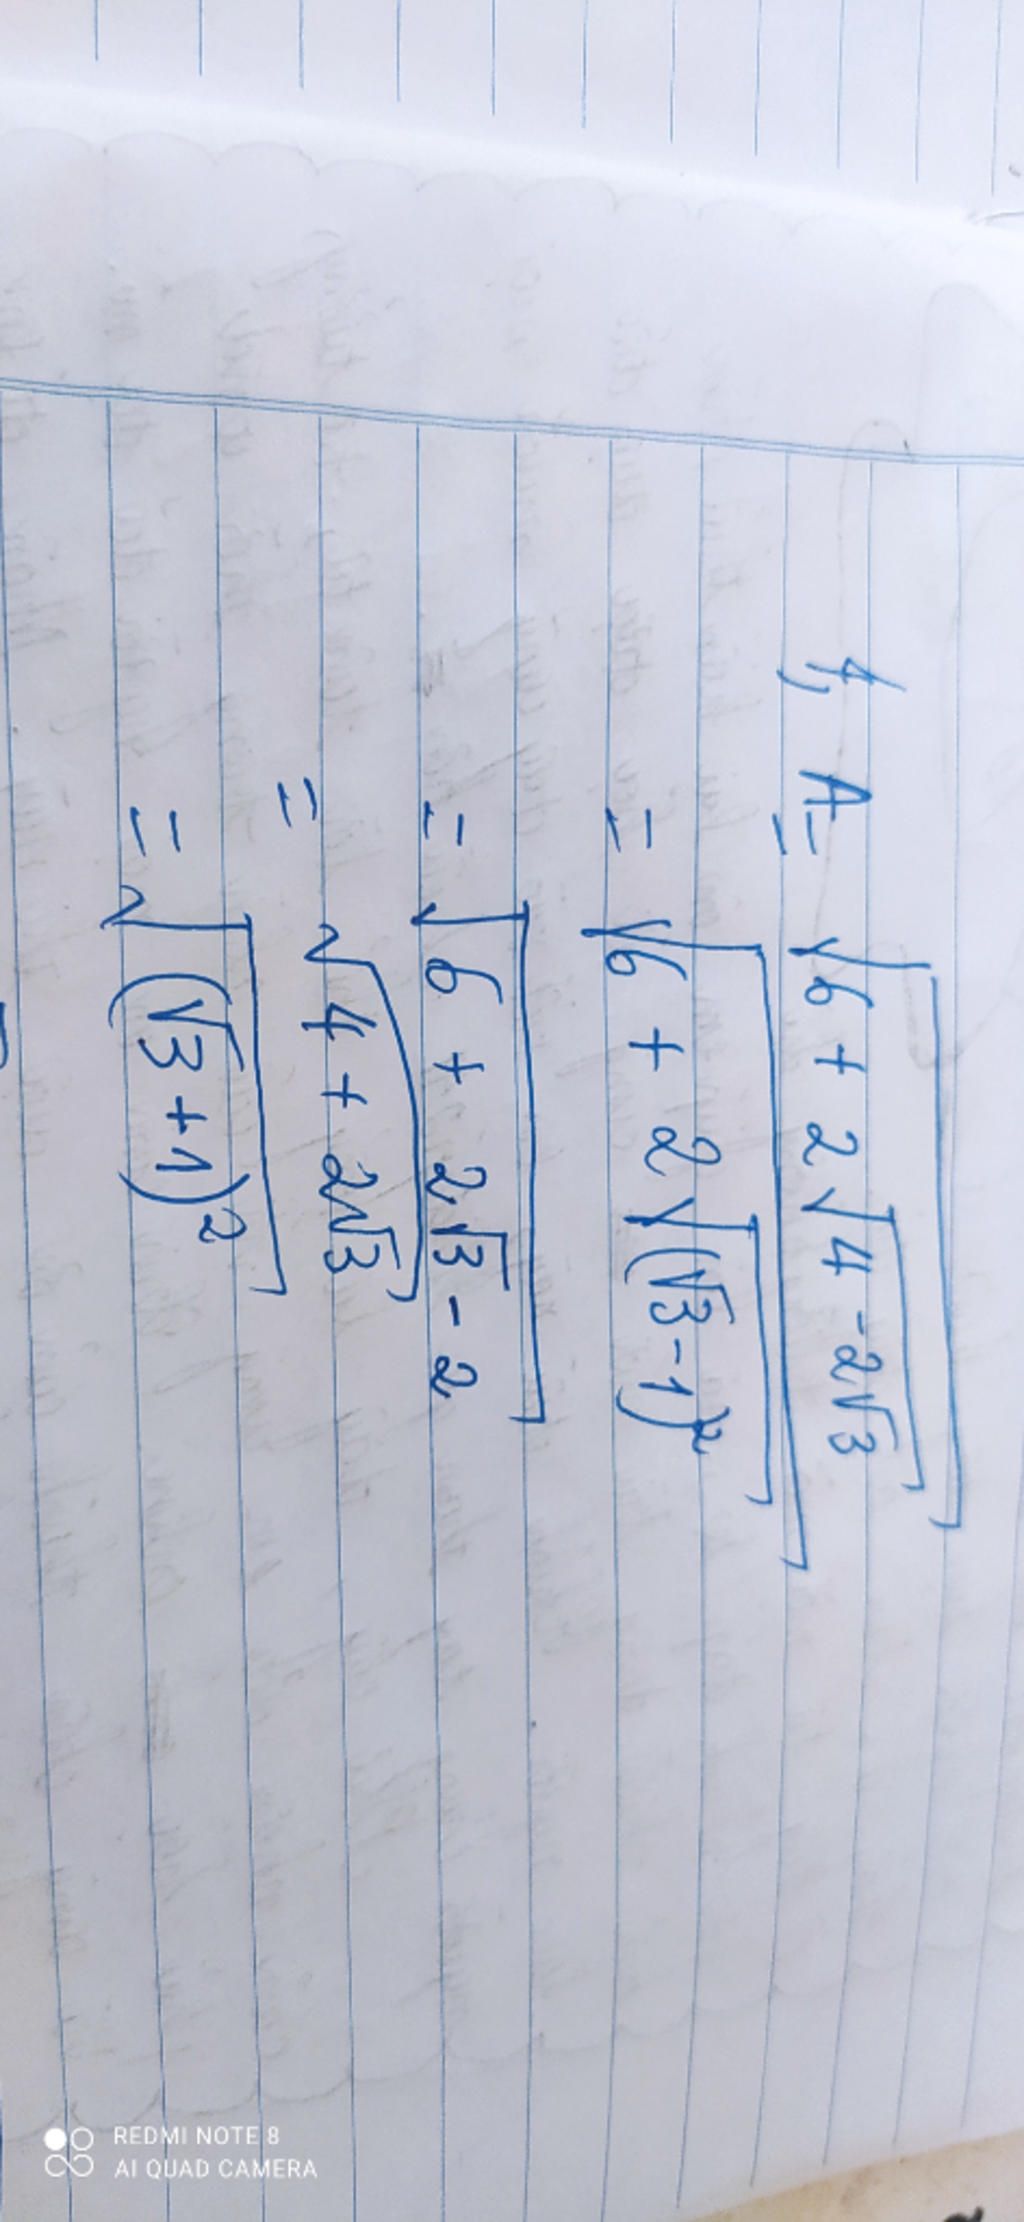 1, A = √(6 + 2√(4 - 2√3))
= √(6 + 2√((√3 - 1)²))
= √(6 + 2√3 - 2)
= √(4 + 2√3)
= √((√3 + 1)²)
REDMI NOTE 8
AI QUAD CAMERA